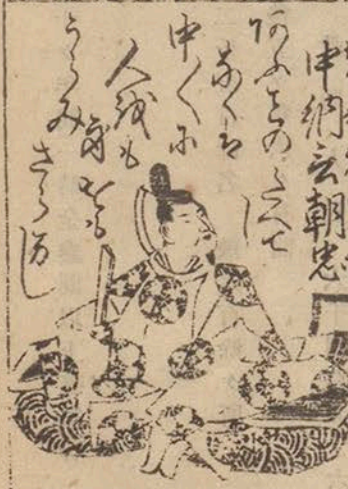 中納言朝忠
あふことのたえてし
なくは
中〱に
人をも
身をも
うらみ
さらまし